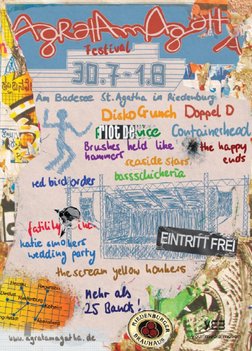 AgratAmAgatt
Festival
30.7-1.8
Am Badesee St.Agatha in Riedenburg
Disko Crunch Doppel D
Containerhead
Brushes held like hammers
the happy ends
seaside stars
bassschickeria
red bird order
fatility inc.
katie smokers wedding party
EINTRITT FREI
the scream yellow honkers
Mehr als
25 Bands!
RIEDENBURGER
BRAUHAUS
www.agratamagatha.de